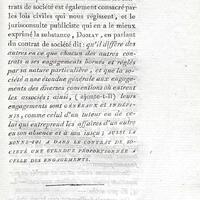 trats de société est également consacré par
les lois civiles qui nous régissent, et le
jurisconsulte publiciste qui en a le mieux
exprimé la substance, DOMAT, en parlant
du contrat de société dit : qu'il diffère des
autres en ce que chacun des autres contrats
a ses engagements bornés et réglés
par sa nature particulière, et que la société
a une étendue générale aux engagements
des diverses conventions où entrent
les associés; ainsi, (ajoute-t-il) leurs
engagements sont GÉNÉRAUX ET INDÉFINIS,
comme celui d'un tuteur ou de celui
qui entreprend les affaires d'un autre
en son absence et à son insçu; AUSSI LA
BONNE-FOI A DANS LE CONTRAT DE SOCIÉTÉ
UNE ÉTENDUE PROPORTIONNÉE A
CELLE DES ENGAGEMENTS.